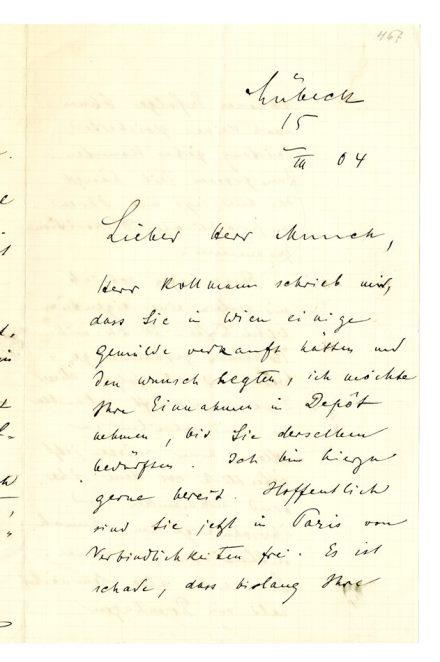 467
Lübeck
15
III 04
Lieber Herr Munch,
Herr Kollmann schrieb mir,
dass Sie in Wien einige
Gemälde verkauft hätten und
den Wunsch hegten, ich möchte
Ihre Einnahmen in Depôt
nehmen, bis Sie derselben
bedürften. Ich bin hierzu
gerne bereit. Hoffentlich
sind Sie jetzt in Paris von
Verbindlichkeiten frei. Es ist
schade, dass bislang Ihre